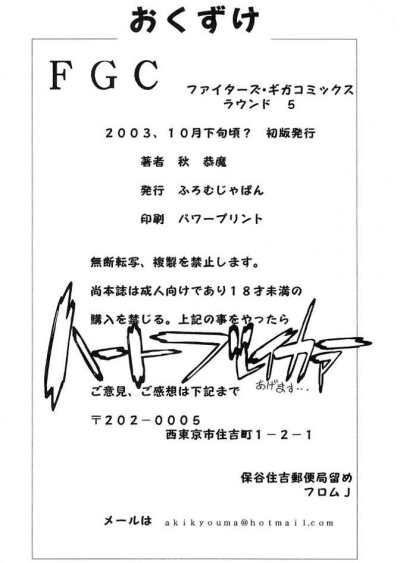 おくずけ
FGC
ファイターズ・ギガコミックス
ラウンド 5
2003、10月下旬頃? 初版発行
著者 秋 恭魔
発行 ふろむじゃぱん
印刷 パワープリント
無断転写、複製を禁止します。
尚本誌は成人向けであり18才未満の
購入を禁じる。上記の事をやったら
ハートブレイカァ
あげます・・・
ご意見、ご感想は下記まで
〒202-0005
西東京市住吉町1-2-1
保谷住吉郵便局留め
フロムJ
メールは akikyouma@hotmail,com